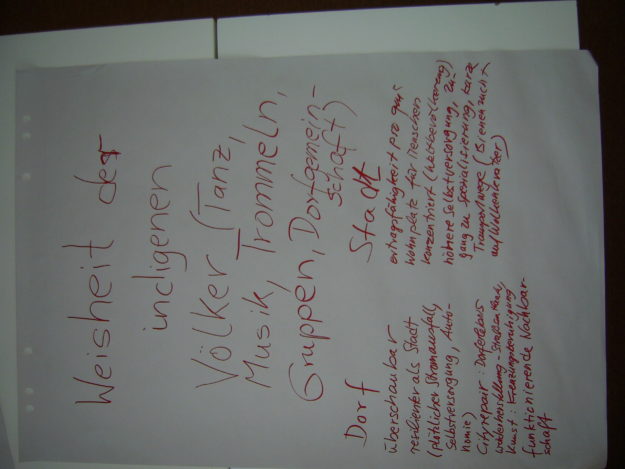 Weisheit der
indigenen
Völker (Tanz,
Musik, Trommeln,
Gruppen, Dorfgemein-
schaft)
Dorf
überschaubar
resilienter als Stadt
(plötzlicher Stromausfall,
Selbstversorgung, Auto-
nomie)
Cityrepair: Dorferlebnis
wiederherstellung - Straßen
Kunst: Kreuzungsberuhigung
funktionierende Nachbar-
schaft
Stadt
ertragsfähigkeit pro qm:
Wohnplatz für Menschen
konzentriert (Weltbevölkerung)
höhere Selbstversorgung, Zu-
gang zu Spezialisierung, kurze
Transportwege (Bienenzucht
auf Wolkenkratzer)